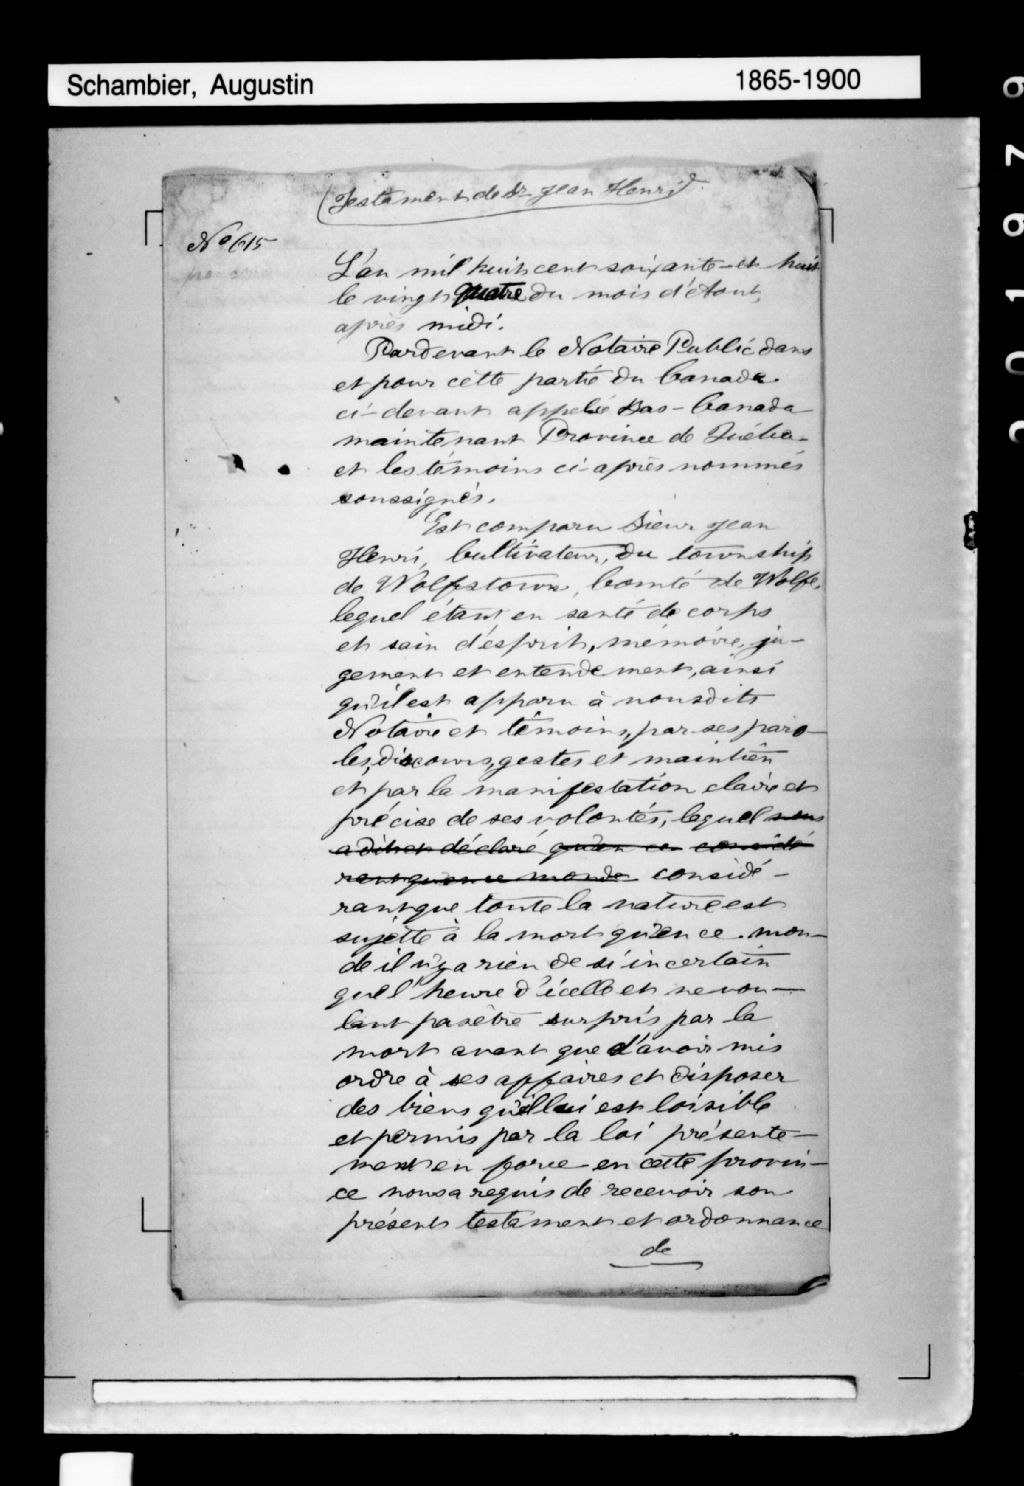 Schambier, Augustin 1865-1900
Testament de Sr Jean Henri
No 615
L'an mil huit cent soixante et huit
le vingt quatre du mois d'Aout,
après midi.
Pardevant le Notaire Public dans
et pour cette partie du Canada
ci-devant appelée Bas-Canada
maintenant Province de Québec
et les témoins ci-après nommés
soussignés.
Est comparu Sieur Jean
Henri, Cultivateur, du township
de Wolfestown, Comté de Wolfe,
lequel étant en santé de corps
et sain d'esprit, mémoire, ju-
gement et entendement, ainsi
qu'il est apparu à nousdits
Notaire et témoins, par ses paro-
les, discours, gestes et maintien
et par la manifestation claire et
précise de ses volontés, lequel nous
a dit et déclaré qu'en ce considé
rant qu'en ce monde considé-
rant que toute la nature est
sujette à la mort qu'en ce mon-
de il n'y a rien de si incertain
que l'heure d'icelle et ne vou-
lant pas être surpris par la
mort avant que d'avoir mis
ordre à ses affaires et disposer
des biens qu'il lui est loisible
et permis par la loi présente-
ment en force en cette provin-
ce nous a requis de recevoir son
présent testament et ordonnance
de
201979